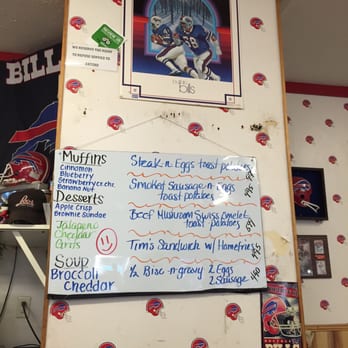 WE RESERVE THE
RIGHT
TO REFUSE SERVICE TO
ANYONE
BILLS
bills
Muffins
Cinnamon
Blueberry
Strawberry
Banana Nut
Desserts
Apple Crisp
Brownie Sundae
Jalapeno
Cheddar
Grits
Soup
Broccoli
Cheddar
Steak n Eggs toast potatoes
Smoked Sausage n Eggs
toast potatoes
Beef Mushroom Swiss Omelet
toast potatoes
Tim's Sandwich w/ Homefries
½ Bisc-n-gravy 2 Eggs
2 Sausage